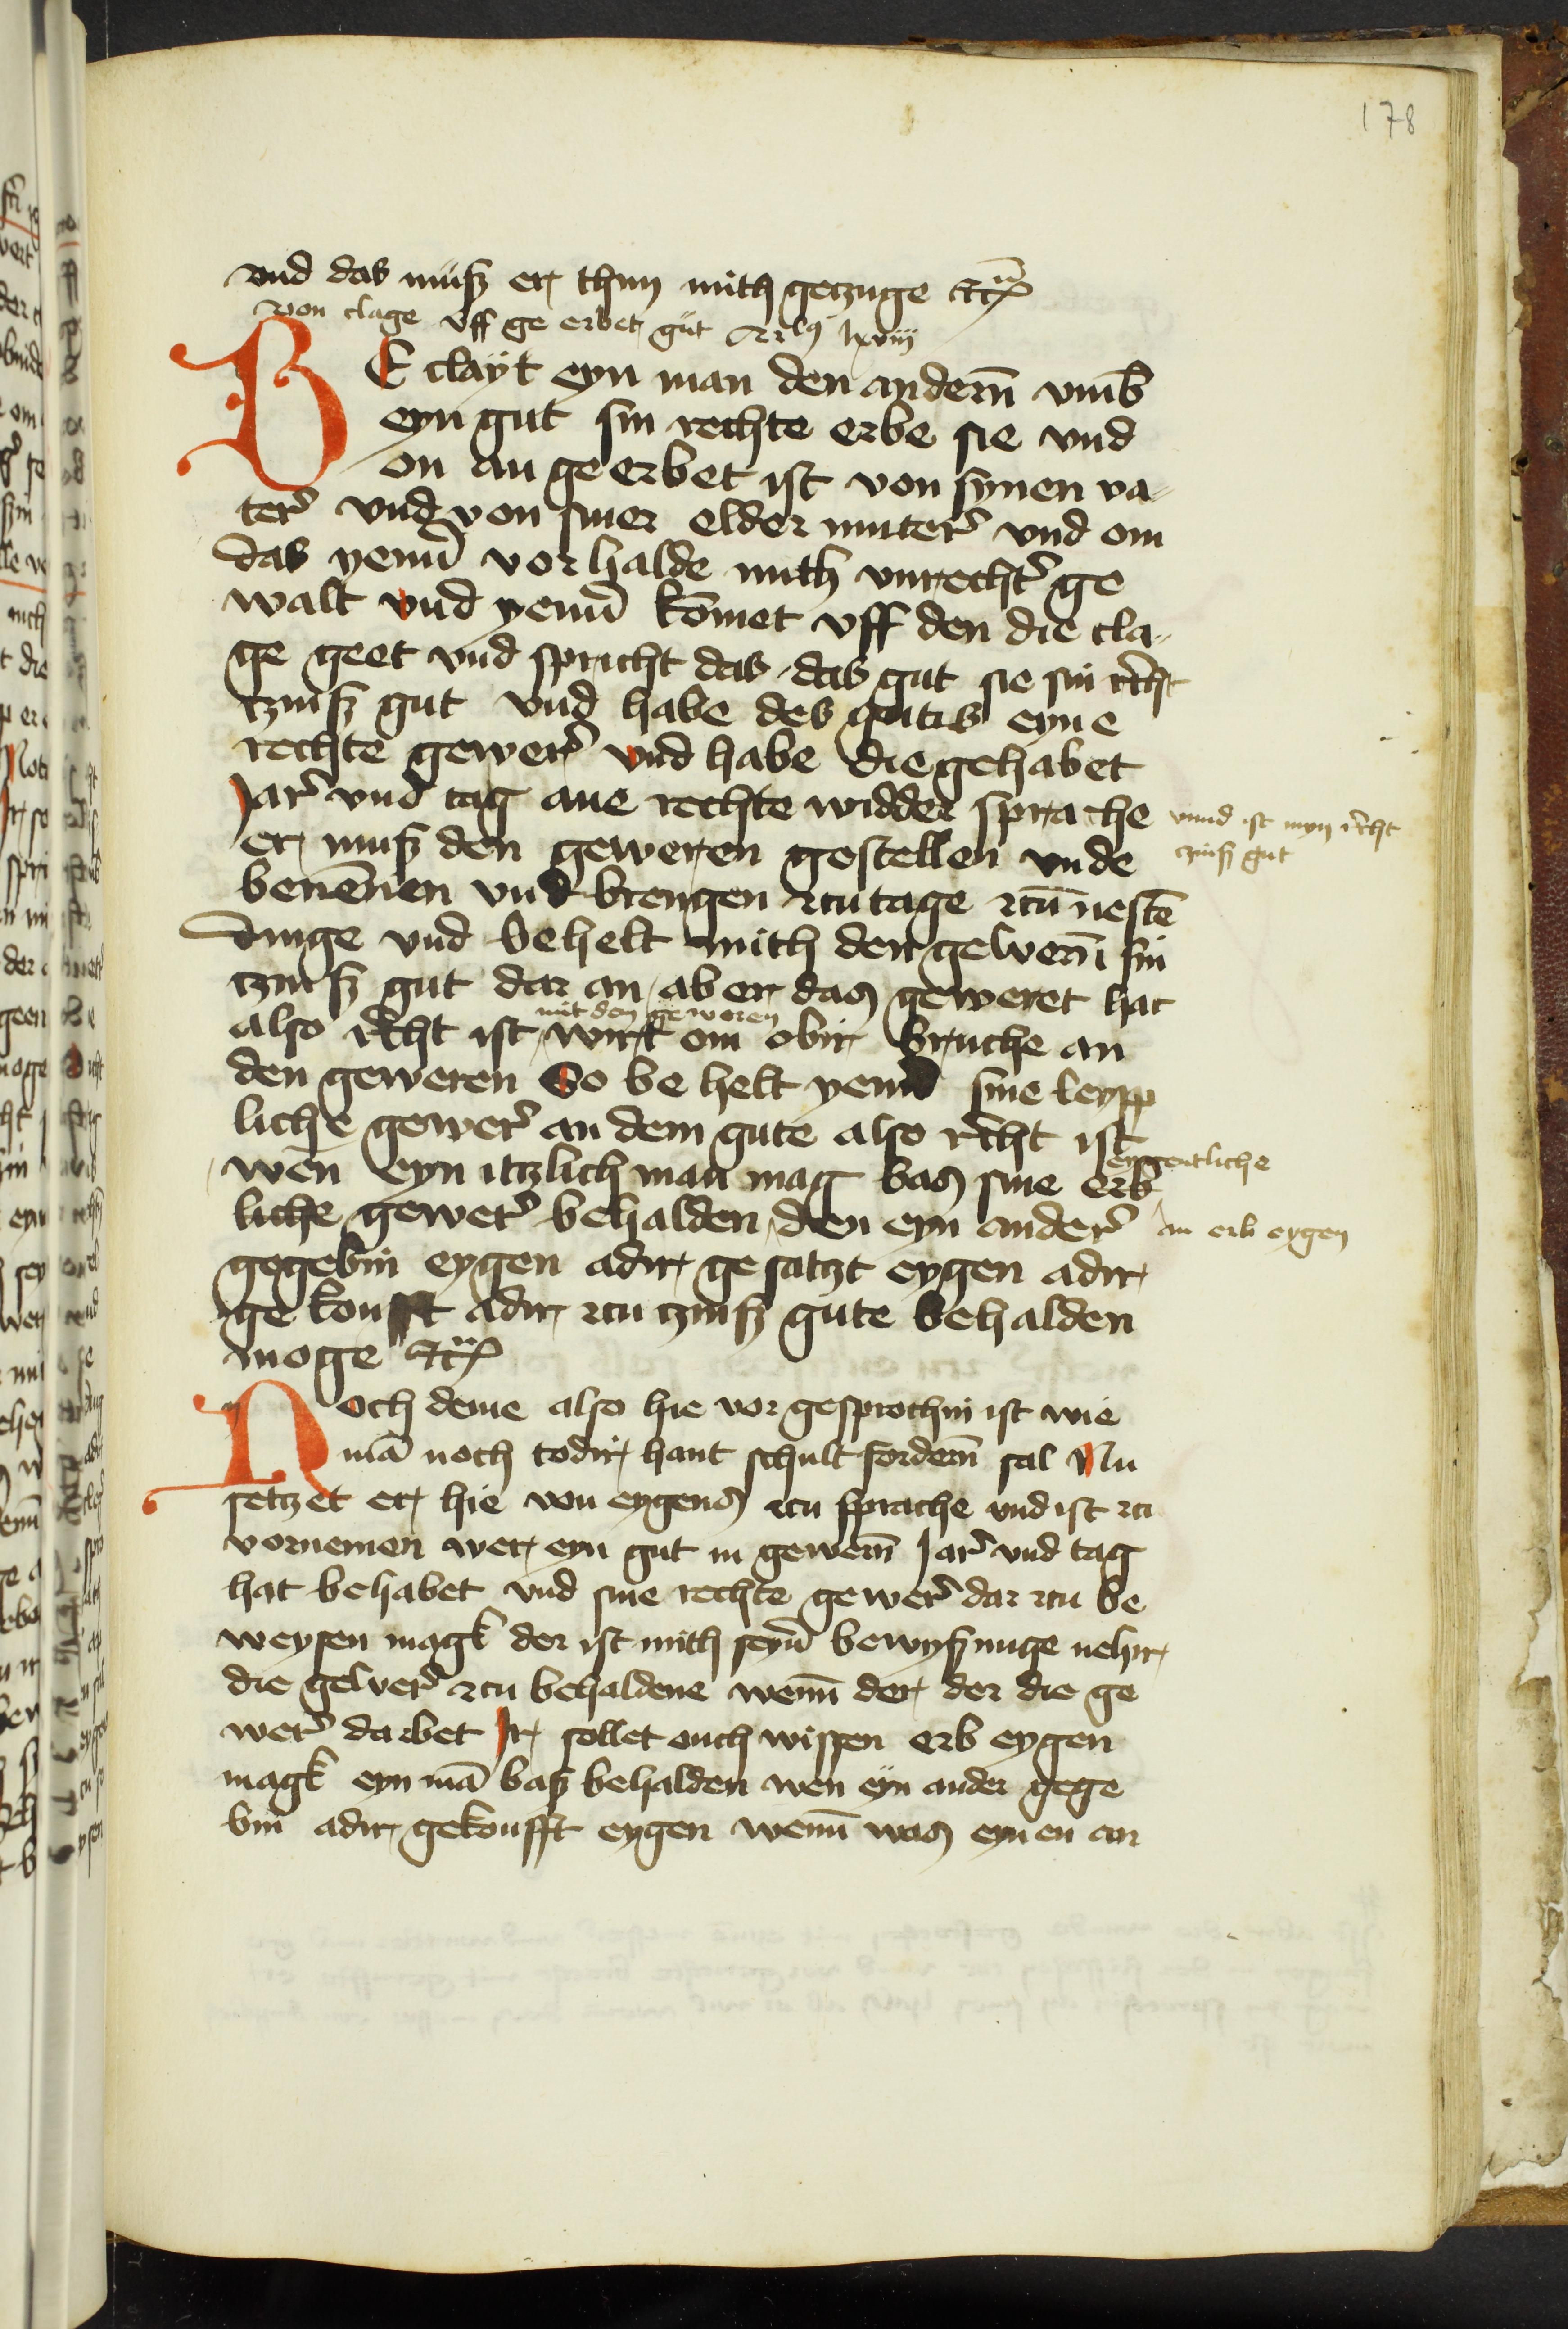 178
vnd das muß er thun mith getzuge ꝛc̄
von clage vff ge erbet gut lxviij
BE clayt eyn man den andern̄ vmb
eyn gut sin rechte erbe sie vnd
on an ge erbet ist von synen va-
ter̄ vnd von siner elder muter̄ vnd om
das yenr̄ vor halde mith vnrecht̄ ge
walt vnd yenr̄ kōmet vff den die cla-
ge geet vnd spricht das das gut sie sin r̄cht
tzinß gut vnd habe des gutis eyne
rechte gewer̄ vnd habe die gehabet
Jar̄ vnd tag ane rechte widder sprache vnnd ist myn r̄cht
er muß den geweren gestellen vnde czinß gut
benēnen vnd brengen zcu tage zcū nestē
dinge vnd behelt mith den gewern̄ sin
tzinß gut dar an ab er das geweret hat
mit den geweren
also r̄cht ist wirt om obir bruche an
den geweren So be helt yenr̄ sine leypp
liche gewer̄ an dem gute also r̄cht ist
eygentliche
wen eyn itzlich man mag bas sine erb
liche gewer̄ behalden den eyn ander̄ an erb eygen
gegebin eygen adir gesatzt eygen adir
ge koufft adir zcu tzinß gute behalden
moge ꝛc̄
Noch deme also hie vor gesprochin ist wie
mā noch todir hant schult fordern̄ sal Nu
setzet er hie von eygens zcu sprache vnd ist zcu
vornemen wer eyn gut in gewern̄ Jar̄ vnd tag
hat behabet vnd sine rechte gewer̄ dar zcu be
weysen magk der ist mith seyn̄ bewyßunge nehir
die gewer̄ zcu behaldene wenn̄ der der die ge
wer̄ darbet Ir sollet ouch wissen erb eygen
magk eyn mā baß behalden wen eyn ander gege
bin adir gekoufft eygen wenn̄ was eynen an